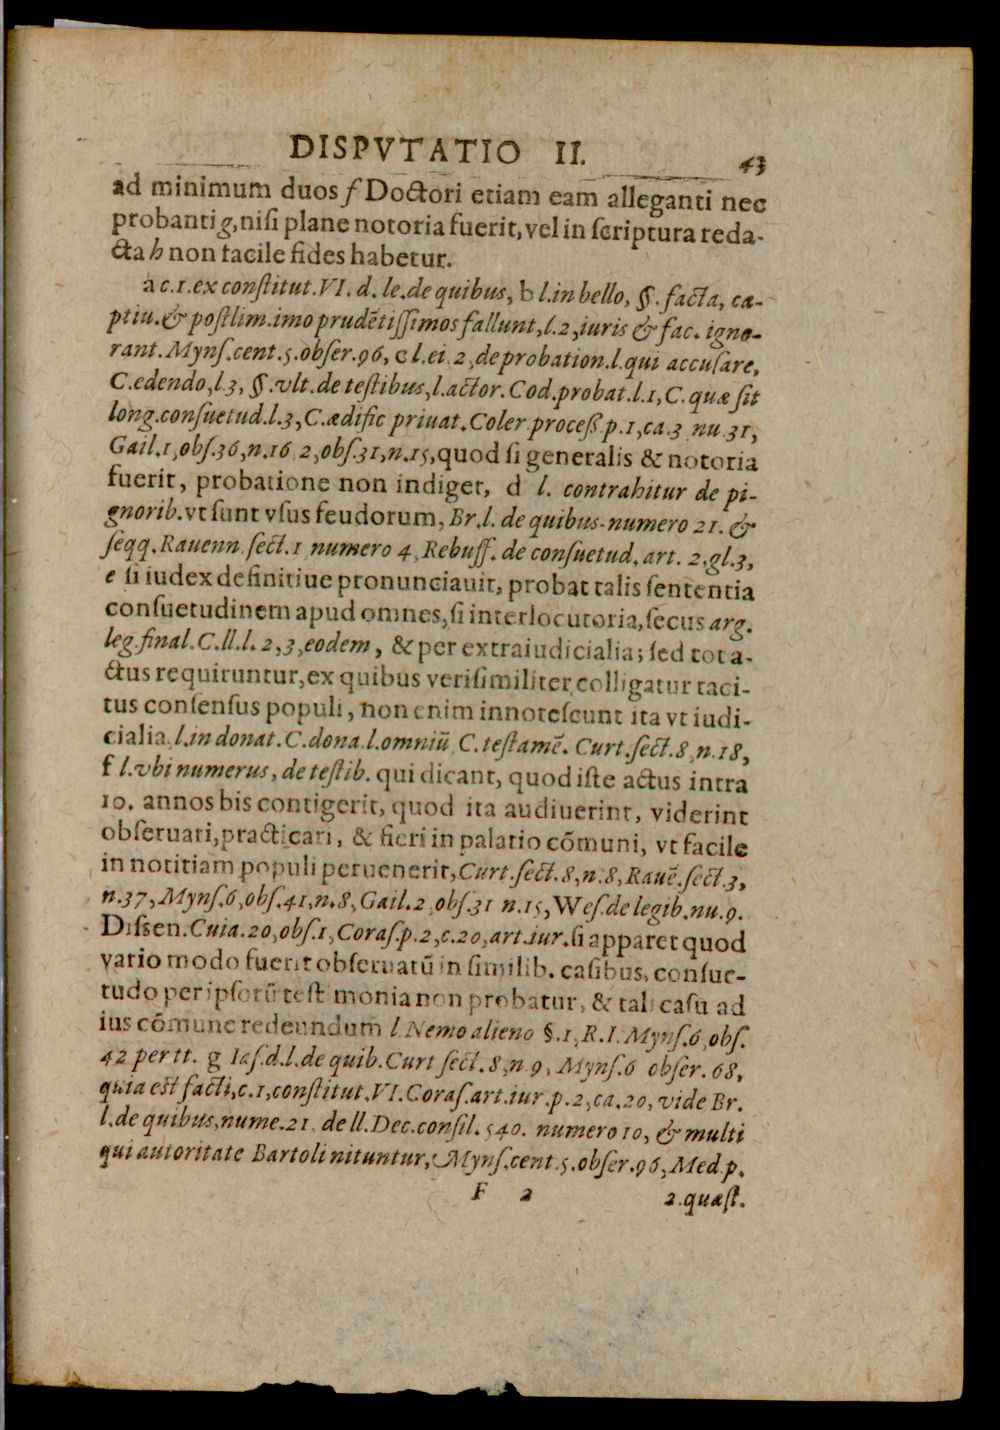 DISPVTATIO II. 43
ad minimum duos f Doctori etiam eam alleganti nec
probanti g, niſi plane notoria fuerit, vel in ſcriptura reda-
cta h non facile fides habetur.
a c.1. ex conſtitut. VI. d. le. de quibus, b l. in bello, §. facta, ca-
ptiu. & poſtlim. imo prudẽtiſſimos fallunt, l. 2, iuris & fac. igno-
rant. Mynſ. cent. 5. obſer. 96, c l. ei 2, de probation. l. qui accuſare,
C. edendo, l. 3, §. vlt. de teſtibus, l. actor. Cod. probat. l. 1, C. quæ ſit
long. conſuetud. l. 3, C. ædific priuat. Coler proceß p. 1, ca. 3 nu 31,
Gail. 1, obſ. 36, n. 16 2, obſ. 31, n. 15, quod ſi generalis & notoria
fuerit, probatione non indiget, d l. contrahitur de pi-
gnorib. vt ſunt vſus feudorum, Br. l. de quibus numero 21. &
ſeqq. Rauenn. ſect. 1 numero 4, Rebuff. de conſuetud. art. 2, gl. 3,
e ſi iudex definitiue pronunciauit, probat talis ſententia
conſuetudinem apud omnes, ſi interlocutoria, ſecus arg.
leg. final. C. ll. l. 2, 3, eodem, & per extraiudicialia; ſed tot a-
ctus requiruntur, ex quibus veriſimiliter colligatur taci-
tus conſenſus populi, non enim innoteſcunt ita vt iudi-
cialia l. in donat. C. dona. l. omniũ C. teſtamẽ. Curt. ſect. 8, n. 18,
f l. vbi numerus, de teſtib. qui dicant, quod iſte actus intra
10. annos bis contigerit, quod ita audiuerint, viderint
obſeruari, practicari, & fieri in palatio cõmuni, vt facile
in notitiam populi peruenerit, Curt. ſect. 8, n. 8, Rauẽ. ſect. 3,
n. 37, Mynſ. 6, obſ. 41, n. 8, Gail. 2, obſ. 31 n. 15, Weſ. de legib. nu. 9.
Diſſen. Cuia. 20, obſ. 1, Coraſ. p. 2, c. 20, art. iur. ſi apparet quod
vario modo fuerit obſeruatũ in ſimilib. caſibus, conſue-
tudo per ipſorũ teſtimonia non probatur, & tali caſu ad
ius cõmune redeundum l. Nemo alieno §. 1, R. I. Mynſ. 6, obſ.
42 per tt. g Iaſ. d. l. de quib. Curt ſect. 8, n 9, Mynſ. 6 obſer. 68,
quia eſt facti, c. 1, conſtitut. VI. Coraſ. art. iur. p. 2, ca. 20, vide Br.
l. de quibus, nume. 21. de ll. Dec. conſil. 540. numero 10, & multi
qui autoritate Bartoli nituntur, Mynſ. cent. 5. obſer. 96, Med. p.
F 2 2. quæſt.